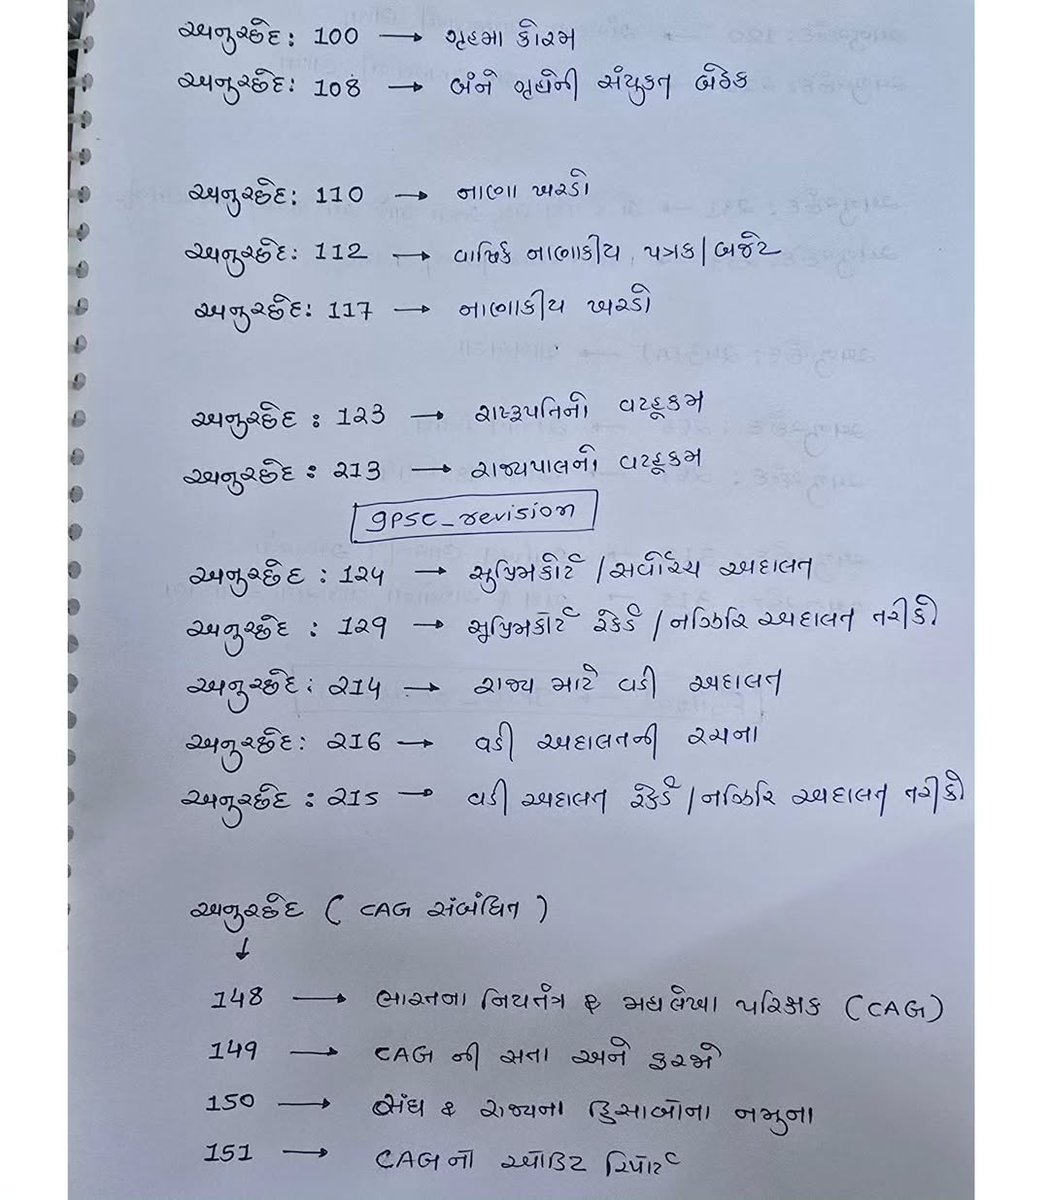 અનુચ્છેદ: 100 → ગૃહમા કોરમ
અનુચ્છેદ: 108 → બંને ગૃહોની સંયુકત બેઠક
અનુચ્છેદ: 110 → નાણા ખરડો
અનુચ્છેદ: 112 → વાર્ષિક નાણાકીય પત્રક/બજેટ
અનુચ્છેદ: 117 → નાણાકીય ખરડો
અનુચ્છેદ : 123 → રાષ્ટ્રપતિનો વટહૂકમ
અનુચ્છેદ : 213 → રાજ્યપાલનો વટહૂકમ
gpsc_revision
અનુચ્છેદ : 124 → સુપ્રિમકોર્ટ / સર્વોચ્ચ અદાલત
અનુચ્છેદ : 129 → સુપ્રિમકોર્ટ રેકર્ડ / નઝિરિ અદાલત તરીકે
અનુચ્છેદ : 214 → રાજ્ય માટે વડી અદાલત
અનુચ્છેદ: 216 → વડી અદાલતની રચના
અનુચ્છેદ : 215 → વડી અદાલત રેકર્ડ /નઝિરિ અદાલત તરીકે
અનુચ્છેદ ( CAG સંબંધિત )
↓
148 → ભારતના નિયતંત્ર & મહાલેખા પરિક્ષક (CAG)
149 → CAG ની સતા અને ફરજો
150 → સંઘ & રાજ્યના હિસાબોના નમુના
151 → CAGનો ઓડિટ રિપોર્ટ